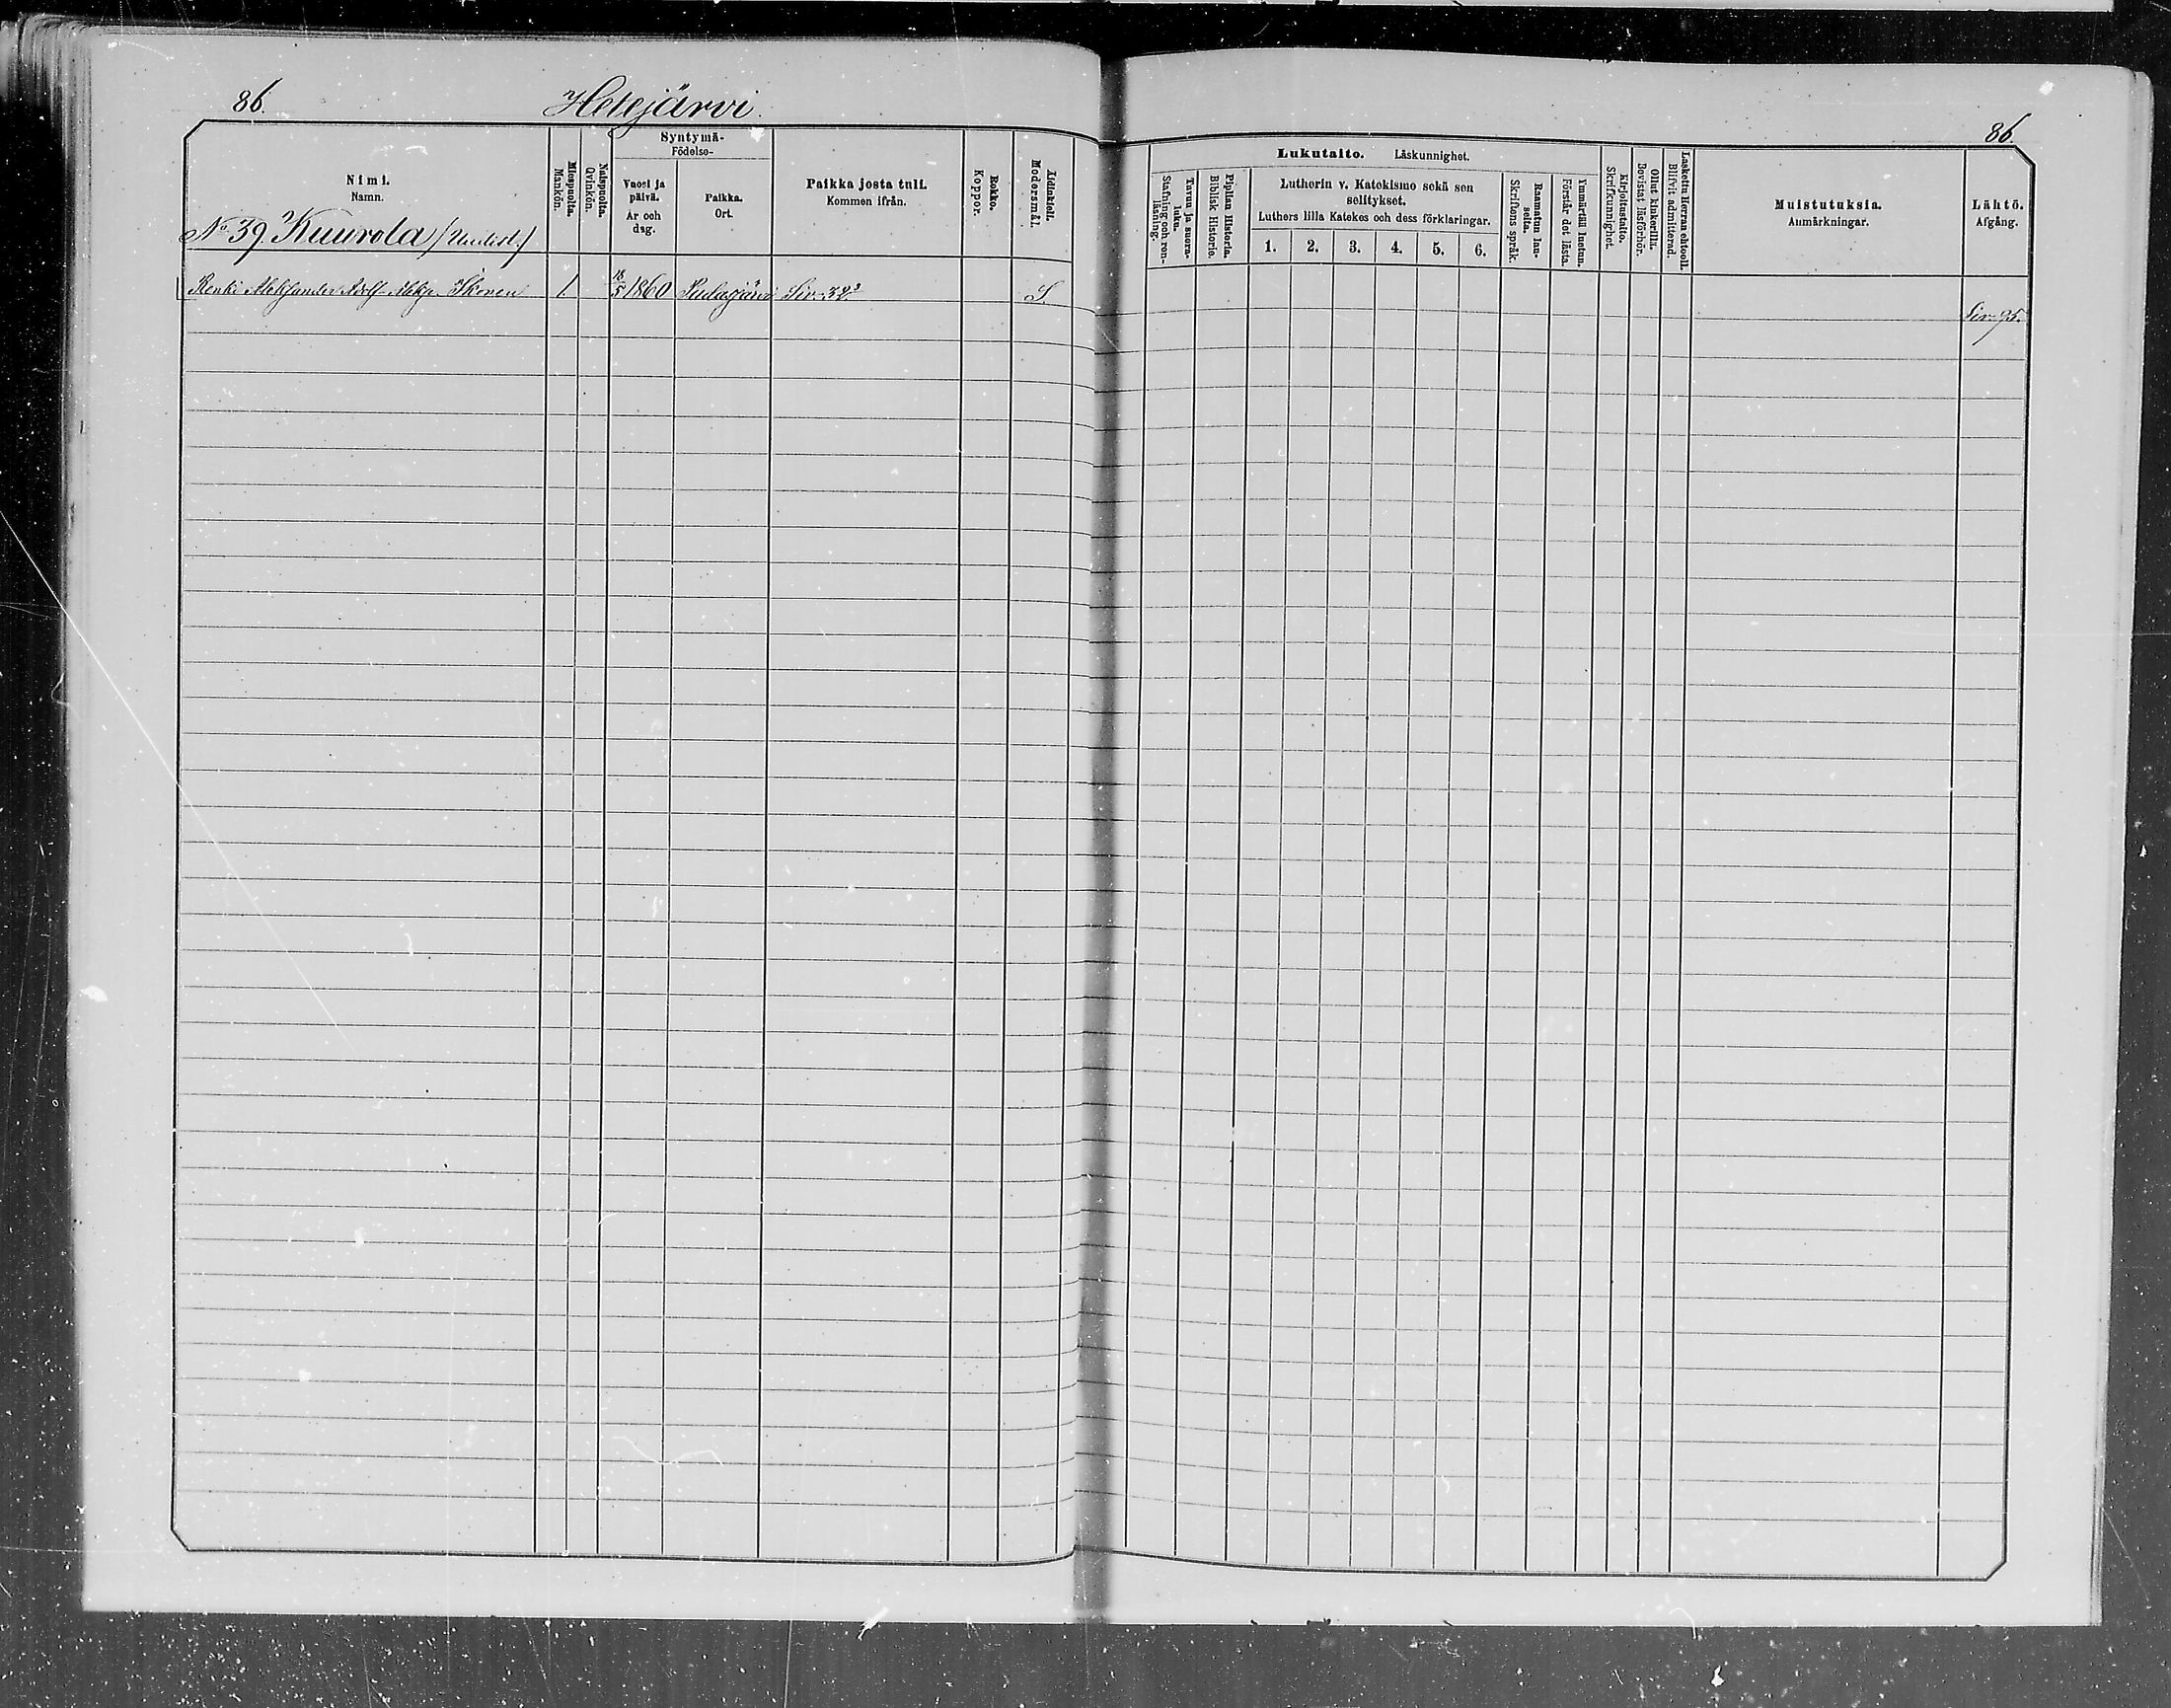 86.
Hetejärvi.
Nimi.
Namn.
Miespuolta.
Mankön.
Naispuolta.
Qvinkön.
Syntymä-
Födelse-
Vuosi ja päivä.
År och dag.
Paikka.
Ort.
Paikka josta tuli.
Kommen ifrån.
Rokko.
Koppor.
Äidinkieli.
Modersmål.
No 39 Kuurola (Uudist.)
Renki Aleksander Adolf Aleksp. Ikonen 1. 18/5 1860 Pudasjärvi Siv. 32² S.
86.
Lukutaito. Läskunnighet.
Tavuu ja suora-luku.
Stafning och ren-läsning.
Piplian Historia.
Biblisk Historie.
Lutherin v. Katekismo sekä sen
selitykset.
Luthers lilla Katekes och dess förklaringar.
1. 2. 3. 4. 5. 6.
Raamatun lau-seita.
Skriftens språk.
Ymmärtää luetun.
Förstår det lästa.
Kirjoitustaito.
Skrifkunnighet.
Ollut kinkerillä.
Bevistat läsförhör.
Laskettu Herran ehtooll.
Blifvit admitterad.
Muistutuksia.
Anmärkningar.
Lähtö.
Afgång.
Siv. 95.